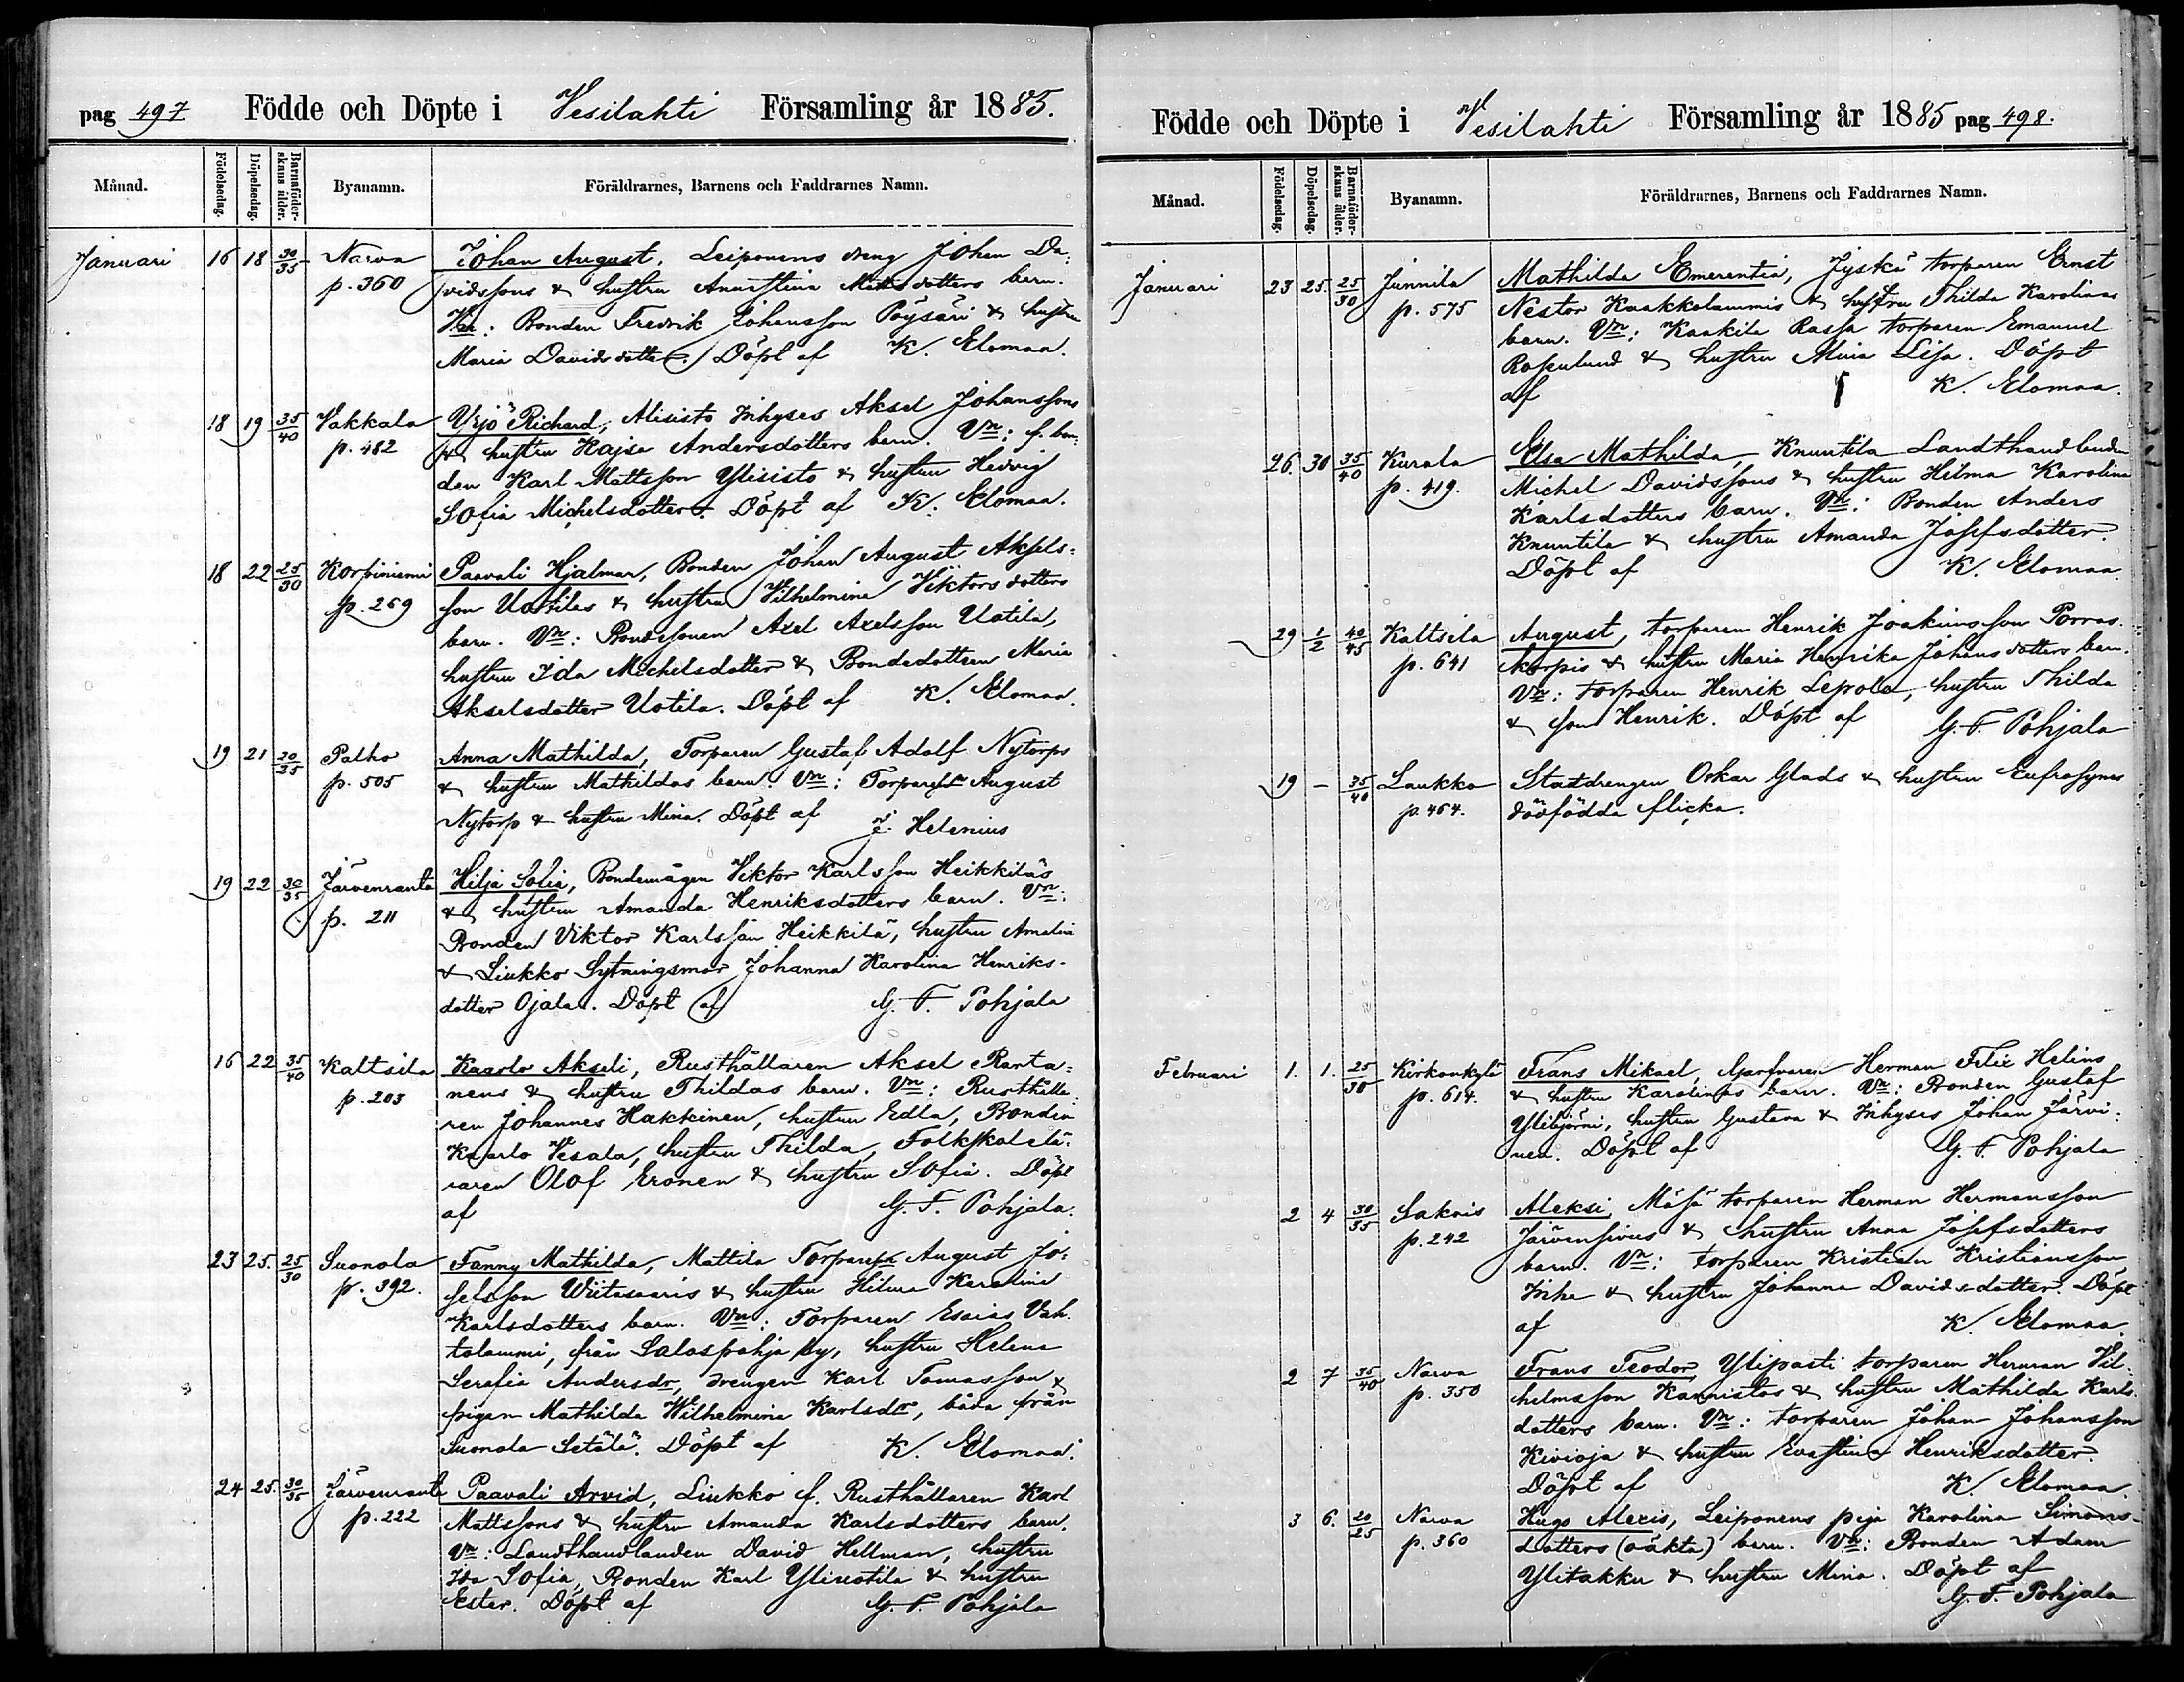 pag 497 Födde och Döpte i Vesilahti Församling år 1885.
Månad. Födelsedag. Döpelsedag. Barnaföder-skans ålder. Byanamn. Föräldrarnes, Barnens och Faddrarnes Namn.
Januari 16 18 30/35 Narva Johan August, Leiponens dreng Johan Da-
p. 360 vidssons & hustru Annastina Mattsdotters barn.
Vn: Bonden Fredrik Johansson Pöysäri & hustru
Maria Davidsdotter. Döpt af K. Elomaa.
18 19 35/40 Vakkala Yrjö Richard, Alisisto Inhyses Aksel Johanssons
p. 482 & hustru Kajsa Andersdotters barn. Vn: f. bon-
den Karl Mattsson Ylisisto & hustru Hedvig
Sofia Michelsdotter. Döpt af K. Elomaa.
18 22 25/30 Korpiniemi Paavali Hjalmar, Bonden Johan August Aksels-
p. 259 son Uotilas & hustru Vilhelmina Viktorsdotters
barn. Vn: Bondesonen Axel Axelsson Uotila,
hustru Ida Michelsdotter & Bondedottren Maria
Akselsdotter Uotila. Döpt af K. Elomaa.
19 21 20/25 Palho Anna Mathilda, Torparen Gustaf Adolf Nytorps
p. 505 & hustru Mathildas barn. Vn: Torparen August
Nytorp & hustru Mina. Döpt af Helenius
19 22 30/35 Järvenranta Hilja Sofia, Bondemågen Viktor Karlsson Heikkiläs
p. 211 & hustru Amanda Henriksdotters barn. Vn:
Bonden Viktor Karlsson Heikkilä, hustru Amalia
& Liukko Sytningsmor Johanna Karolina Henriks-
dotter Ojala. Döpt af G. F. Pohjala
16 22 35/40 Kaltsila Kaarlo Akseli, Rusthållaren Aksel Ranta-
p. 203 nens & hustru Thildas barn. Vn: Rusthålla-
ren Johannes Hakkinen, hustru Edla, Bonden
Kaarlo Vesala, hustru Thilda, Folkskolelä-
raren Olof Eronen & hustru Sofia. Döpt
af G. F. Pohjala.
23 25. 25/30 Suonola Fanny Mathilda, Mattila Torparen August Jo-
p. 392. sefsson Wiitasaaris & hustru Hilma Karolina
Karlsdotters barn. Vn: Torparen Esaias Vah-
talammi, från Salospohja by, hustru Helena
Serafia Andersdr, drengen Karl Tomasson &
pigan Mathilda Wilhelmina Karlsdr, båda från
Suonola Setälä. Döpt af K. Elomaa.
24 25. 30/35 Järvenranta Paavali Arvid, Liukko f. Rusthållaren Karl
p. 222 Mattssons & hustru Amanda Karlsdotters barn.
Vn: Landthandlanden David Hellman, hustru
Ida Sofia, Bonden Karl Yliuotila & hustru
Ester. Döpt af G. F. Pohjala
Födde och Döpte i Vesilahti Församling år 1885 pag 498.
Månad. Födelsedag. Döpelsedag. Barnaföder-skans ålder. Byanamn. Föräldrarnes, Barnens och Faddrarnes Namn.
Januari 23 25. 25/30 Junnila Mathilda Emerentia, Jyskä torparen Ernst
p. 575 Nestor Kaakkolammis & hustru Thilda Karolinas
barn. Vn: Kaakila Rassa torparen Emanuel
Rosenlund & hustru Miina Lisa. Döpt
af K. Elomaa.
26. 30 35/40 Kurala Elsa Mathilda, Knuutila Landthandlanden
p. 419. Michel Davidssons & hustru Hilma Karolina
Karlsdotters barn. Vn: Bonden Anders
Knuutila & hustru Amanda Josefsdotter.
Döpt af K. Elomaa.
29 1/2 40/45 Kaltsila August, torparen Henrik Joakimsson Porras-
p. 641 korpis & hustru Maria Henrika Johansdotters barn.
Vn: torparen Henrik Lepola, hustru Thilda
& son Henrik. Döpt af G. F. Pohjala
19 - 35/40 Laukko Stattdrengen Oskar Glads & hustru Eufrosynes
p. 464. dödfödda flicka.
Februari 1. 1. 25/30 Kirkonkylä Frans Mikael, Garfvaren Herman Felix Helins
p. 614. & hustru Karolinas barn. Vn: Bonden Gustaf
Ylibjörni, hustru Gustava & Inhyses Johan Järvi-
nen. Döpt af G. F. Pohjala
2 4 30/35 Sakois Aleksi, Mäsä torparen Herman Hermansson
p. 242 Järvensivus & hustru Anna Josefsdotters
barn. Vn: torparen Kristian Kristiansson
Inha & hustru Johanna Davidsdotter. Döpt
af K. Elomaa.
2 7 35/40 Narva Frans Teodor, Ylipasti torparen Herman Vil-
p. 350 helmsson Kannistos & hustru Mathilda Karls-
dotters barn. Vn: torparen Johan Johansson
Kivioja & hustru Evastina Henriksdotter.
Döpt af K. Elomaa.
3 6. 20/25 Narva Hugo Alexis, Leiponens piga Karolina Simons-
p. 360 dotters (oäkta) barn. Vn: Bonden Adam
Ylitakku & hustru Mina. Döpt af
G. F. Pohjala